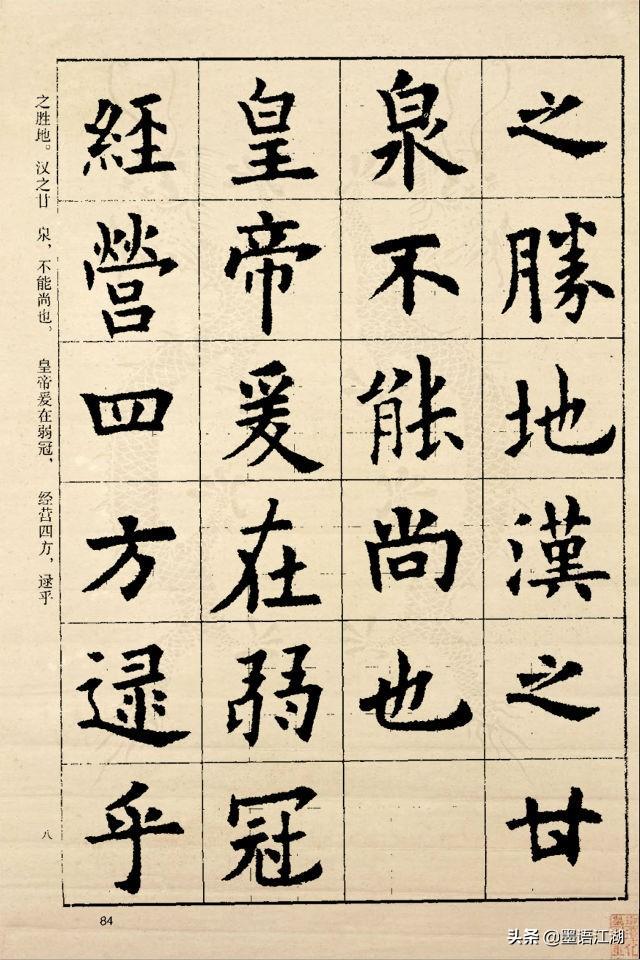 之勝地漢之甘
泉不能尚也
皇帝爰在弱冠
經營四方逯乎
之胜地。汉之甘泉，不能尚也。皇帝爰在弱冠，经营四方，逯乎
八
84
头条 @墨语江湖